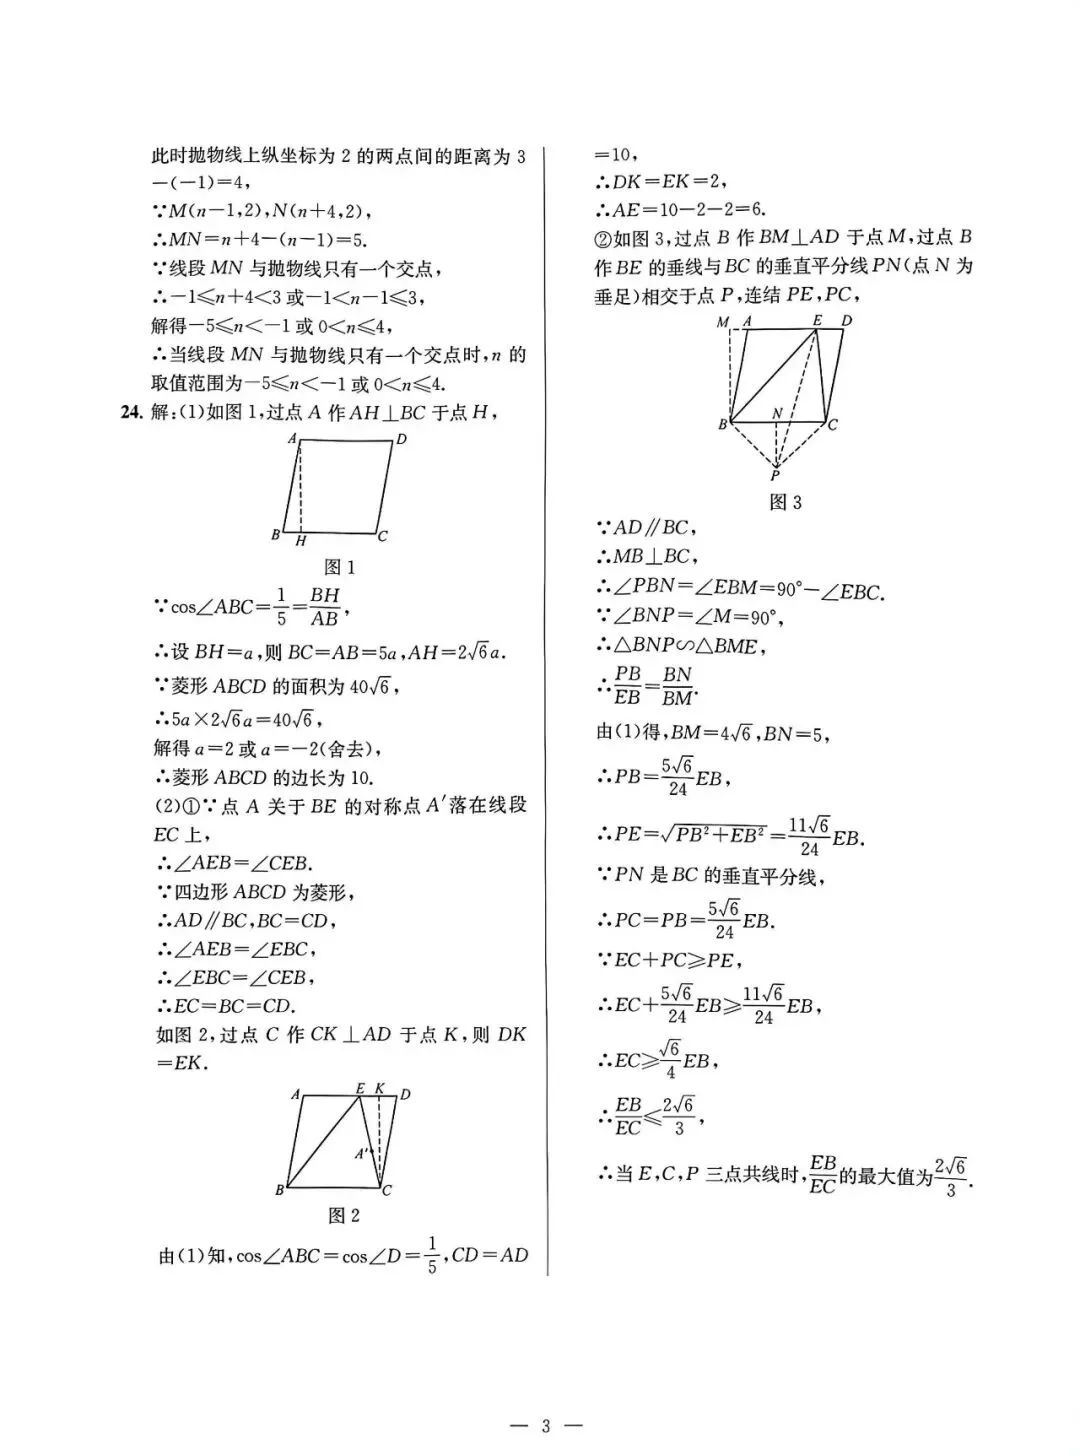 此时抛物线上纵坐标为 2 的两点间的距离为 3
-(-1)=4,
∵M(n-1,2),N(n+4,2),
∴MN=n+4-(n-1)=5.
∵线段 MN 与抛物线只有一个交点,
∴-1≤n+4<3 或-1<n-1≤3,
解得-5≤n<-1 或 0<n≤4,
∴当线段 MN 与抛物线只有一个交点时,n 的
取值范围为-5≤n<-1 或 0<n≤4.
24. 解:(1)如图 1,过点 A 作 AH⊥BC 于点 H,
A D
B H C
图 1
∵cos∠ABC=1/5=BH/AB,
∴设 BH=a,则 BC=AB=5a,AH=2√6a.
∵菱形 ABCD 的面积为 40√6,
∴5a×2√6a=40√6,
解得 a=2 或 a=-2(舍去),
∴菱形 ABCD 的边长为 10.
(2)①∵点 A 关于 BE 的对称点 A′落在线段
EC 上,
∴∠AEB=∠CEB.
∵四边形 ABCD 为菱形,
∴AD∥BC,BC=CD,
∴∠AEB=∠EBC,
∴∠EBC=∠CEB,
∴EC=BC=CD.
如图 2,过点 C 作 CK⊥AD 于点 K,则 DK
=EK.
A E K D
A′
B C
图 2
由(1)知,cos∠ABC=cos∠D=1/5,CD=AD
=10,
∴DK=EK=2,
∴AE=10-2-2=6.
②如图 3,过点 B 作 BM⊥AD 于点 M,过点 B
作 BE 的垂线与 BC 的垂直平分线 PN(点 N 为
垂足)相交于点 P,连结 PE,PC,
M A E D
B N C
P
图 3
∵AD∥BC,
∴MB⊥BC,
∴∠PBN=∠EBM=90°-∠EBC.
∵∠BNP=∠M=90°,
∴△BNP∽△BME,
∴PB/EB=BN/BM.
由(1)得,BM=4√6,BN=5,
∴PB=5√6/24EB,
∴PE=√(PB²+EB²)=11√6/24EB.
∵PN 是 BC 的垂直平分线,
∴PC=PB=5√6/24EB.
∵EC+PC≥PE,
∴EC+5√6/24EB≥11√6/24EB,
∴EC≥√6/4EB,
∴EB/EC≤2√6/3,
∴当 E,C,P 三点共线时,EB/EC的最大值为2√6/3.
— 3 —